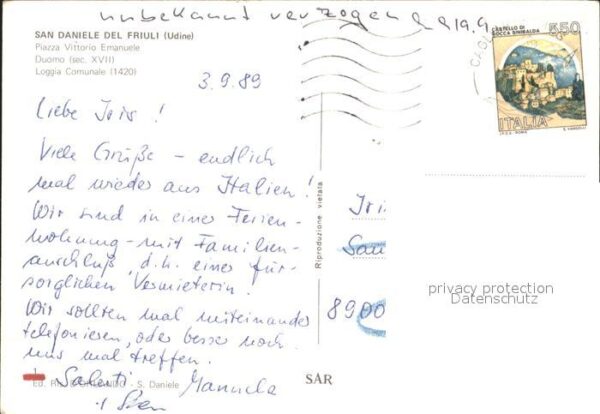 unbekannt verzogen
SAN DANIELE DEL FRIULI (Udine)
Piazza Vittorio Emanuele
Duomo (sec. XVII)
Loggia Comunale (1420)
3.9.89
Liebe Iris!
Viele Grüße – endlich
mal wieder aus Italien!
Wir sind in einer Ferien-
wohnung - mit Familien-
anschluß, d.h. einer für-
sorglichen Vermieterin!
Wir sollten mal miteinander
telefonieren, oder besser noch
uns mal treffen.
Manuela
- S. Daniele
SAR
Riproduzione vietata
CASTELLO DI
ROCCA SINIBALDA
550
ITALIA
Iri
San
8900
privacy protection
Datenschutz